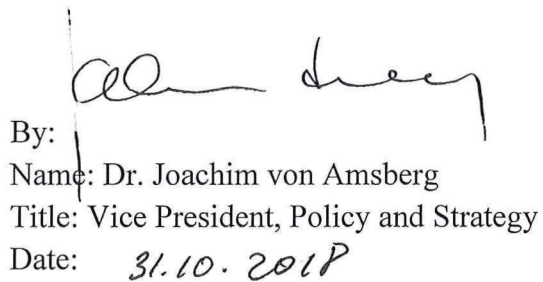 By:
Name: Dr. Joachim von Amsberg
Title: Vice President, Policy and Strategy
Date: 31.10.2018